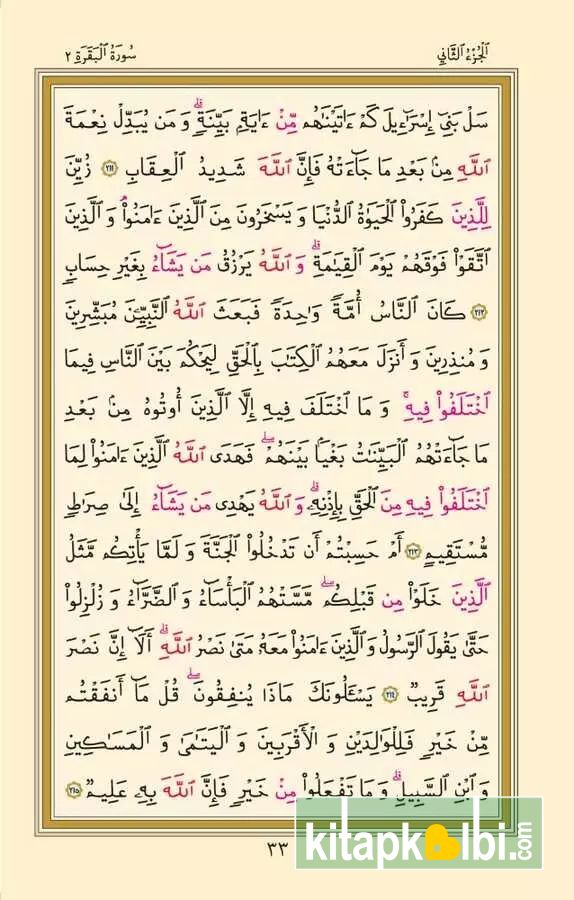 الجزء الثاني
سورة البقرة ٢
سَلْ بَنِىٓ إِسْرَٰٓءِيلَ كَمْ ءَاتَيْنَٰهُم مِّنْ ءَايَةٍۭ بَيِّنَةٍۗ وَمَن يُبَدِّلْ نِعْمَةَ
ٱللَّهِ مِنۢ بَعْدِ مَا جَآءَتْهُ فَإِنَّ ٱللَّهَ شَدِيدُ ٱلْعِقَابِ ٢١١ زُيِّنَ
لِلَّذِينَ كَفَرُوا۟ ٱلْحَيَوٰةُ ٱلدُّنْيَا وَيَسْخَرُونَ مِنَ ٱلَّذِينَ ءَامَنُوا۟ۘ وَٱلَّذِينَ
ٱتَّقَوْا۟ فَوْقَهُمْ يَوْمَ ٱلْقِيَٰمَةِۗ وَٱللَّهُ يَرْزُقُ مَن يَشَآءُ بِغَيْرِ حِسَابٍ
٢١٢ كَانَ ٱلنَّاسُ أُمَّةً وَٰحِدَةً فَبَعَثَ ٱللَّهُ ٱلنَّبِيِّۦنَ مُبَشِّرِينَ
وَمُنذِرِينَ وَأَنزَلَ مَعَهُمُ ٱلْكِتَٰبَ بِٱلْحَقِّ لِيَحْكُمَ بَيْنَ ٱلنَّاسِ فِيمَا
ٱخْتَلَفُوا۟ فِيهِۚ وَمَا ٱخْتَلَفَ فِيهِ إِلَّا ٱلَّذِينَ أُوتُوهُ مِنۢ بَعْدِ
مَا جَآءَتْهُمُ ٱلْبَيِّنَٰتُ بَغْيًۢا بَيْنَهُمْۖ فَهَدَى ٱللَّهُ ٱلَّذِينَ ءَامَنُوا۟ لِمَا
ٱخْتَلَفُوا۟ فِيهِ مِنَ ٱلْحَقِّ بِإِذْنِهِۦۗ وَٱللَّهُ يَهْدِى مَن يَشَآءُ إِلَىٰ صِرَٰطٍ
مُّسْتَقِيمٍ ٢١٣ أَمْ حَسِبْتُمْ أَن تَدْخُلُوا۟ ٱلْجَنَّةَ وَلَمَّا يَأْتِكُم مَّثَلُ
ٱلَّذِينَ خَلَوْا۟ مِن قَبْلِكُمۖ مَّسَّتْهُمُ ٱلْبَأْسَآءُ وَٱلضَّرَّآءُ وَزُلْزِلُوا۟
حَتَّىٰ يَقُولَ ٱلرَّسُولُ وَٱلَّذِينَ ءَامَنُوا۟ مَعَهُۥ مَتَىٰ نَصْرُ ٱللَّهِۗ أَلَآ إِنَّ نَصْرَ
ٱللَّهِ قَرِيبٌ ٢١٤ يَسْـَٔلُونَكَ مَاذَا يُنفِقُونَۖ قُلْ مَآ أَنفَقْتُم
مِّنْ خَيْرٍ فَلِلْوَٰلِدَيْنِ وَٱلْأَقْرَبِينَ وَٱلْيَتَٰمَىٰ وَٱلْمَسَٰكِينِ
وَٱبْنِ ٱلسَّبِيلِۗ وَمَا تَفْعَلُوا۟ مِنْ خَيْرٍ فَإِنَّ ٱللَّهَ بِهِۦ عَلِيمٌ ٢١٥
٣٣
kitapkalbi.com